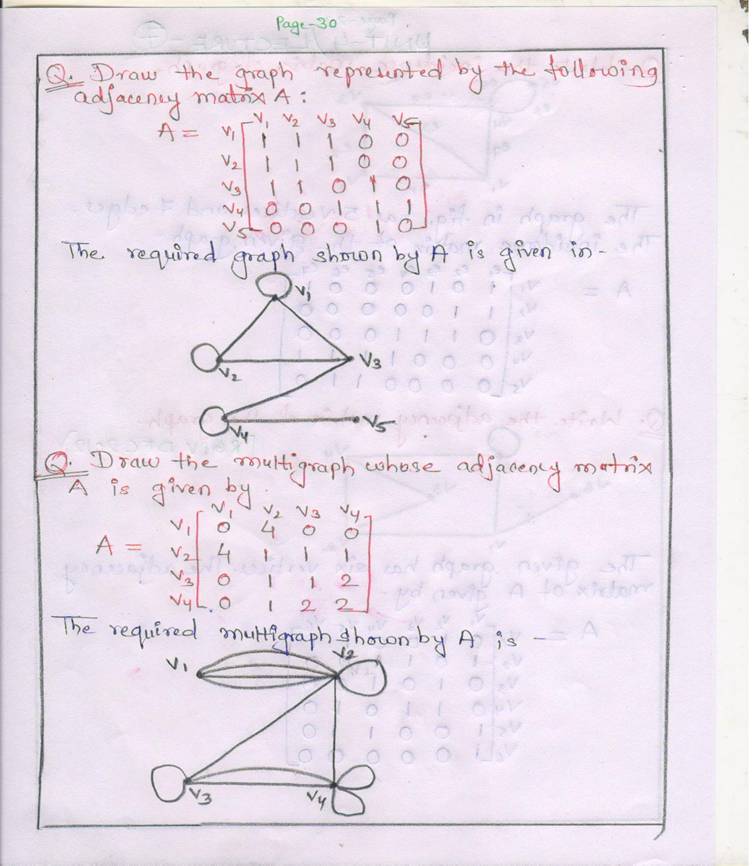 Page-30
Q. Draw the graph represented by the following
adjacency matrix A :
V1 V2 V3 V4 V5
A = V1 1 1 1 0 0
V2 1 1 1 0 0
V3 1 1 0 1 0
V4 0 0 1 1 1
V5 0 0 0 1 0
The required graph shown by A is given in -
V1
V2 V3
V4 V5
Q. Draw the multigraph whose adjacency matrix
A is given by.
V1 V2 V3 V4
V1 0 4 0 0
A = V2 4 1 1 1
V3 0 1 1 2
V4 0 1 2 2
The required multigraph shown by A is -
V1 V2
V3 V4